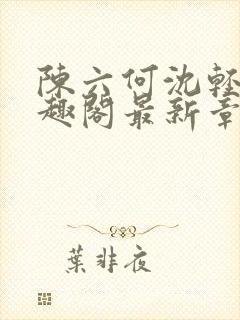 陳六何沈輕
趣閣最新章
葉非夜